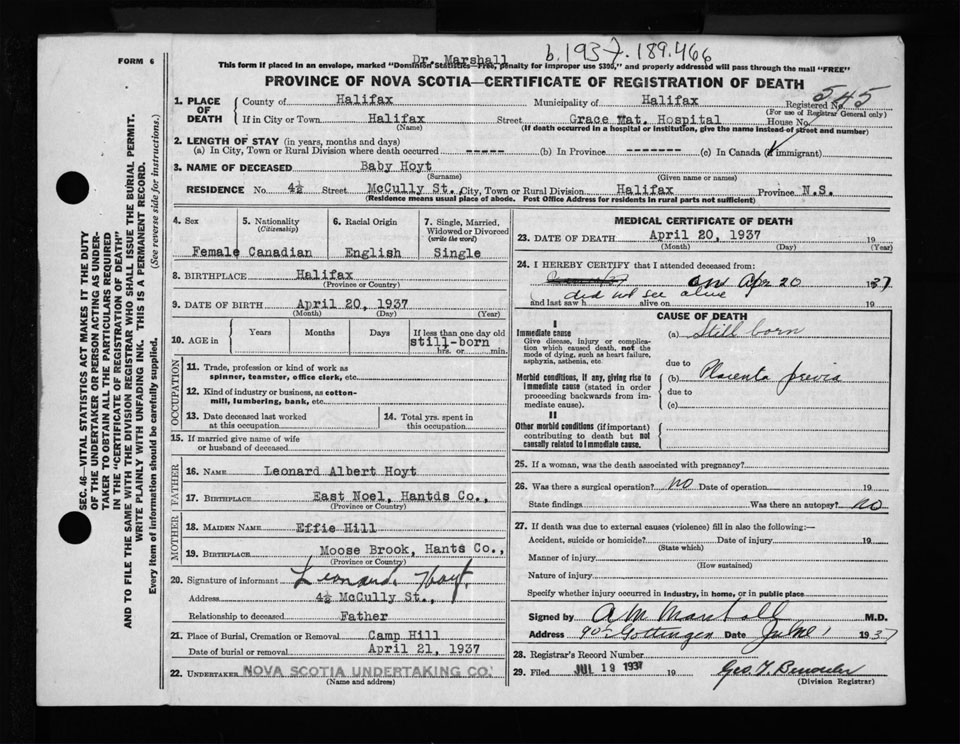 FORM 6
Dr. Marshall
b. 1937. 189.466
This form if placed in an envelope, marked "Dominion Statistics—Free, penalty for improper use $300," and properly addressed will pass through the mail "FREE"
PROVINCE OF NOVA SCOTIA—CERTIFICATE OF REGISTRATION OF DEATH
1. PLACE OF DEATH
County of Halifax Municipality of Halifax Registered No. 545
(For use of Registrar General only)
If in City or Town Halifax Street Grace Mat. Hospital House No.
(Name) (If death occurred in a hospital or institution, give the name instead of street and number)
2. LENGTH OF STAY (in years, months and days)
(a) In City, Town or Rural Division where death occurred ----- (b) In Province ------- (c) In Canada (if immigrant)
3. NAME OF DECEASED Baby Hoyt
(Surname) (Given name or names)
RESIDENCE No. 4½ Street McCully St., City, Town or Rural Division Halifax Province N.S.
(Residence means usual place of abode. Post Office Address for residents in rural parts not sufficient)
4. Sex
Female
5. Nationality
(Citizenship)
Canadian
6. Racial Origin
English
7. Single, Married, Widowed or Divorced
(write the word)
Single
8. BIRTHPLACE Halifax
(Province or Country)
9. DATE OF BIRTH April 20, 1937
(Month) (Day) (Year)
10. AGE in
Years Months Days If less than one day old
still-born
hrs. or min.
OCCUPATION
11. Trade, profession or kind of work as
spinner, teamster, office clerk, etc.
12. Kind of industry or business, as cotton-
mill, lumbering, bank, etc.
13. Date deceased last worked
at this occupation
14. Total yrs. spent in
this occupation
15. If married give name of wife
or husband of deceased
FATHER
16. NAME Leonard Albert Hoyt
17. BIRTHPLACE East Noel, Hantds Co.,
(Province or Country)
MOTHER
18. MAIDEN NAME Effie Hill
19. BIRTHPLACE Moose Brook, Hants Co.,
(Province or Country)
20. Signature of informant Leonard Hoyt
Address 4½ McCully St.,
Relationship to deceased Father
21. Place of Burial, Cremation or Removal Camp Hill
Date of burial or removal April 21, 1937
22. UNDERTAKER NOVA SCOTIA UNDERTAKING CO.
(Name and address)
MEDICAL CERTIFICATE OF DEATH
23. DATE OF DEATH April 20, 1937 19
(Month) (Day) (Year)
24. I HEREBY CERTIFY that I attended deceased from:
on Apr 20 1937
did not see alive
and last saw h alive on 19
CAUSE OF DEATH
I
Immediate cause
Give disease, injury or complica-
tion which caused death, not the
mode of dying, such as heart failure,
asphyxia, asthenia, etc
(a) Still born
due to
Morbid conditions, if any, giving rise to
immediate cause (stated in order
proceeding backwards from im-
mediate cause).
(b) Placenta previa
due to
(c)
II
Other morbid conditions (if important)
contributing to death but not
causally related to immediate cause.
25. If a woman, was the death associated with pregnancy?
26. Was there a surgical operation? no Date of operation 19
State findings Was there an autopsy? no
27. If death was due to external causes (violence) fill in also the following:—
Accident, suicide or homicide? Date of injury 19
(State which)
Manner of injury
(How sustained)
Nature of injury
Specify whether injury occurred in industry, in home, or in public place
Signed by A M Marshall M.D.
Address 90 Gottingen Date 1937
28. Registrar's Record Number
29. Filed JUL 19 1937 19 Geo. T.
(Division Registrar)
SEC. 46—VITAL STATISTICS ACT MAKES IT THE DUTY
OF THE UNDERTAKER OR PERSON ACTING AS UNDER-
TAKER TO OBTAIN ALL THE PARTICULARS REQUIRED
IN THE "CERTIFICATE OF REGISTRATION OF DEATH"
AND TO FILE THE SAME WITH THE DIVISION REGISTRAR WHO SHALL ISSUE THE BURIAL PERMIT.
WRITE PLAINLY WITH UNFADING INK. THIS IS A PERMANENT RECORD.
Every item of information should be carefully supplied. (See reverse side for instructions.)